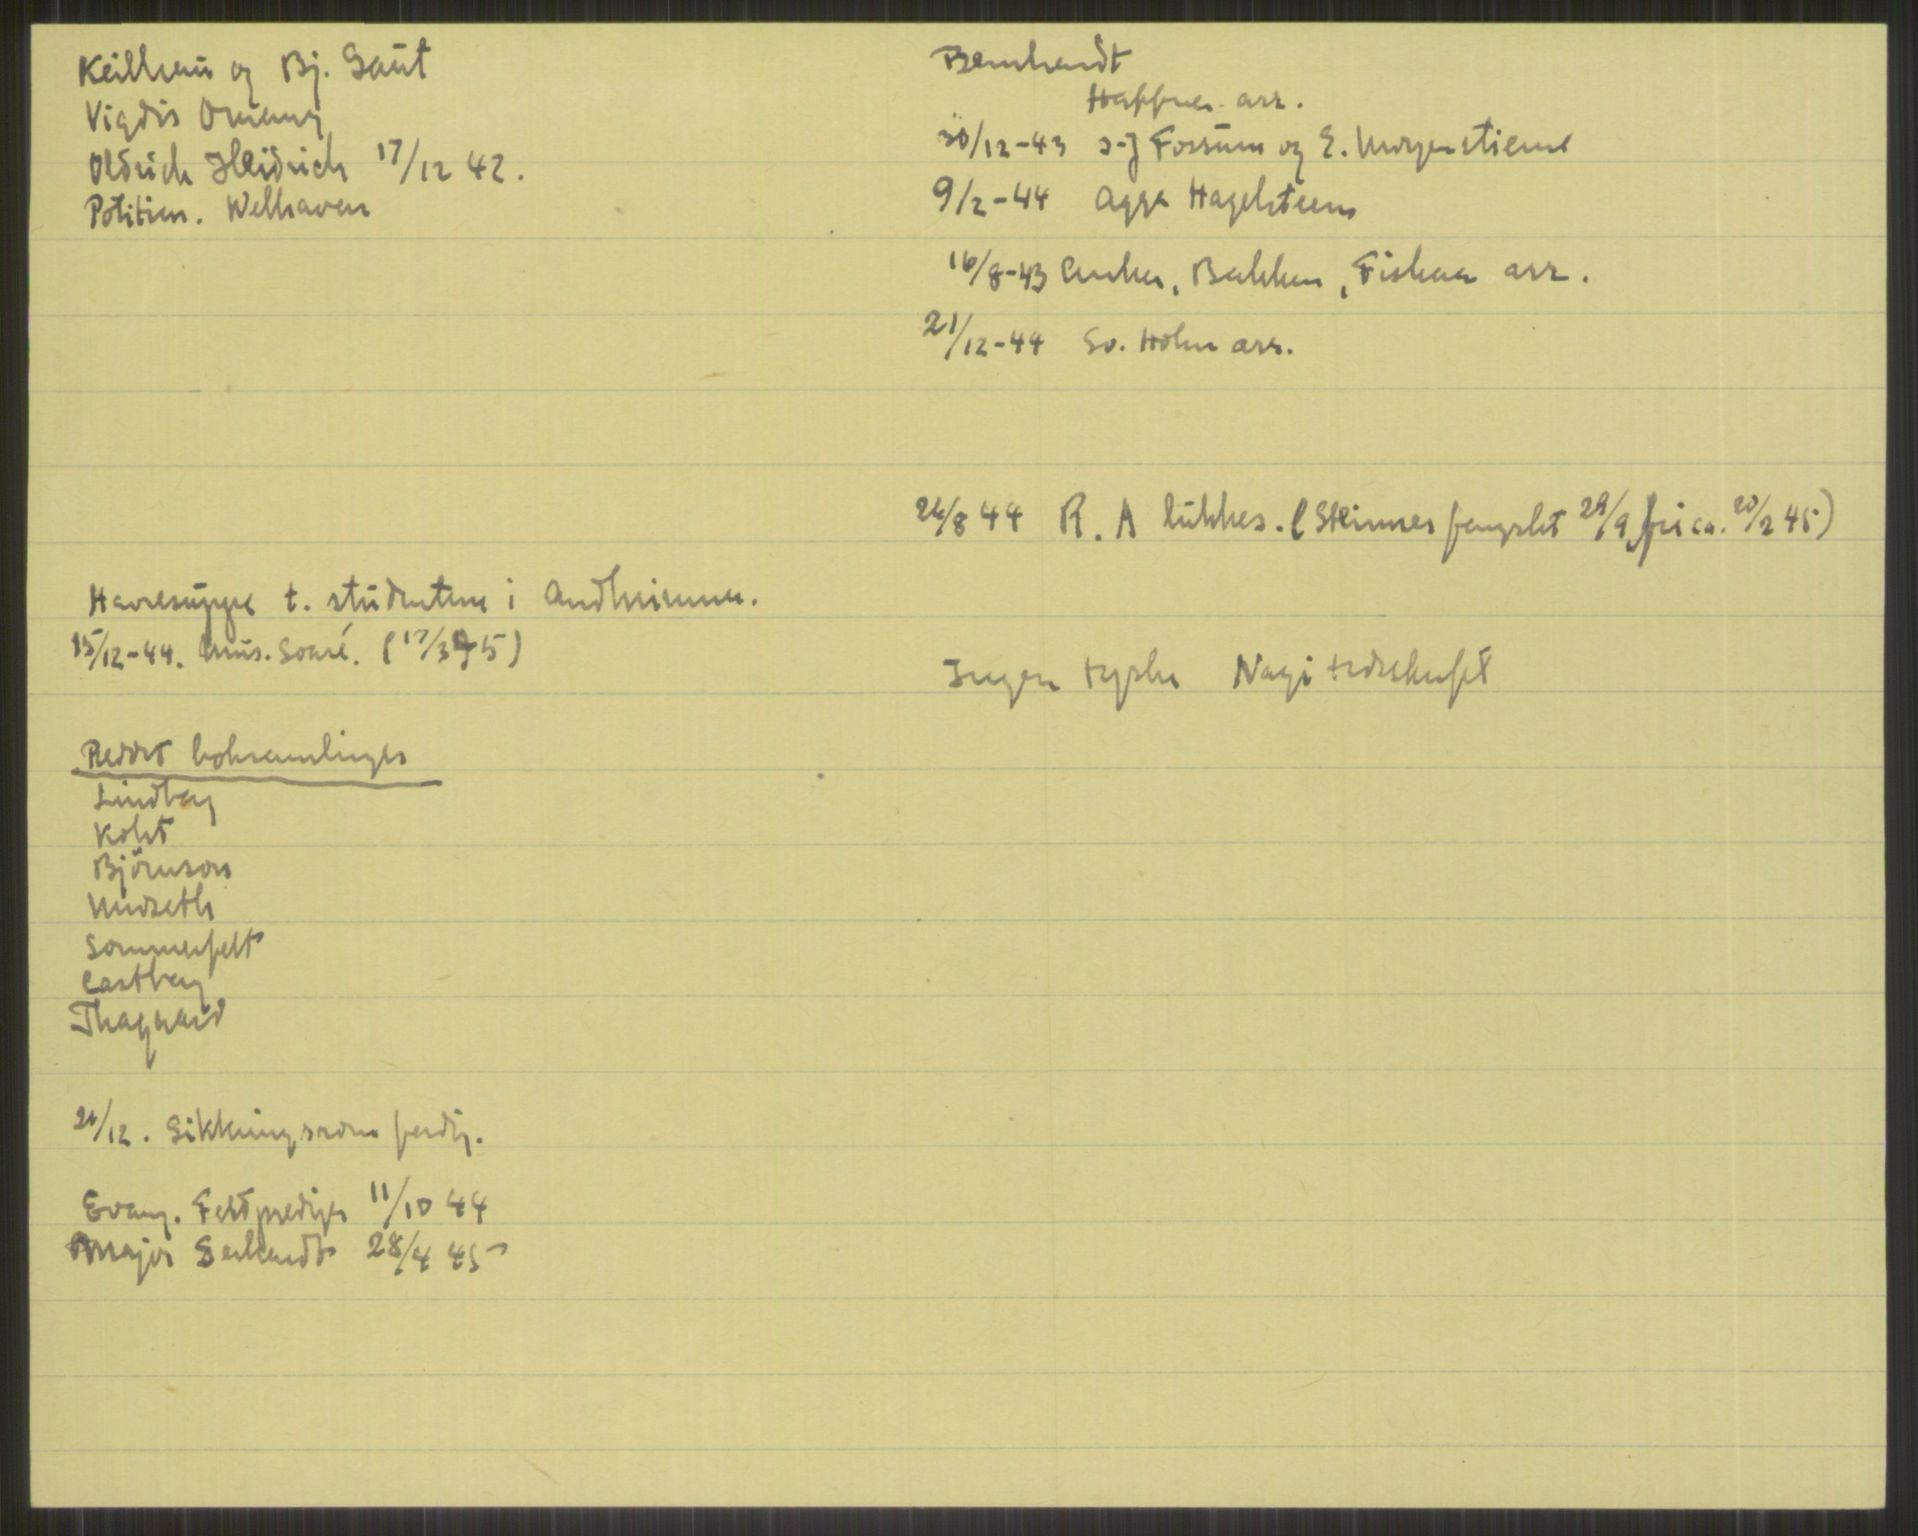 Keilhau og Bj. Saut
Vigdis Omang
Oldrich Heidrich 17/12 42.
Politien. Welhaven
Havresuppe t. studentene i Andhrimner.
15/12-44. Mus. Soaré. (17/3 45)
Reddet boksamlinger
Lindberg
Koht
Björnson
Mudseth
Sommerfelt
Castberg
Thagaard
21/12. Sikkringsrom ferdig.
Evang. Feldprediger 11/10 44
Major 28/4 45
Bernhardt
Haffner arr.
30/12-43 Fossum og E. Morgenstierne
9/2-44 Agga Hagelsteen
16/8-43 Anker, Bakken, Fiskaa arr.
21/12-44 Sv. Holm arr.
26/8 44 R.A lukkes. (Steinnes fengslet 29/9, fri ca. 20/2 45)
Ingen tyske Nazi